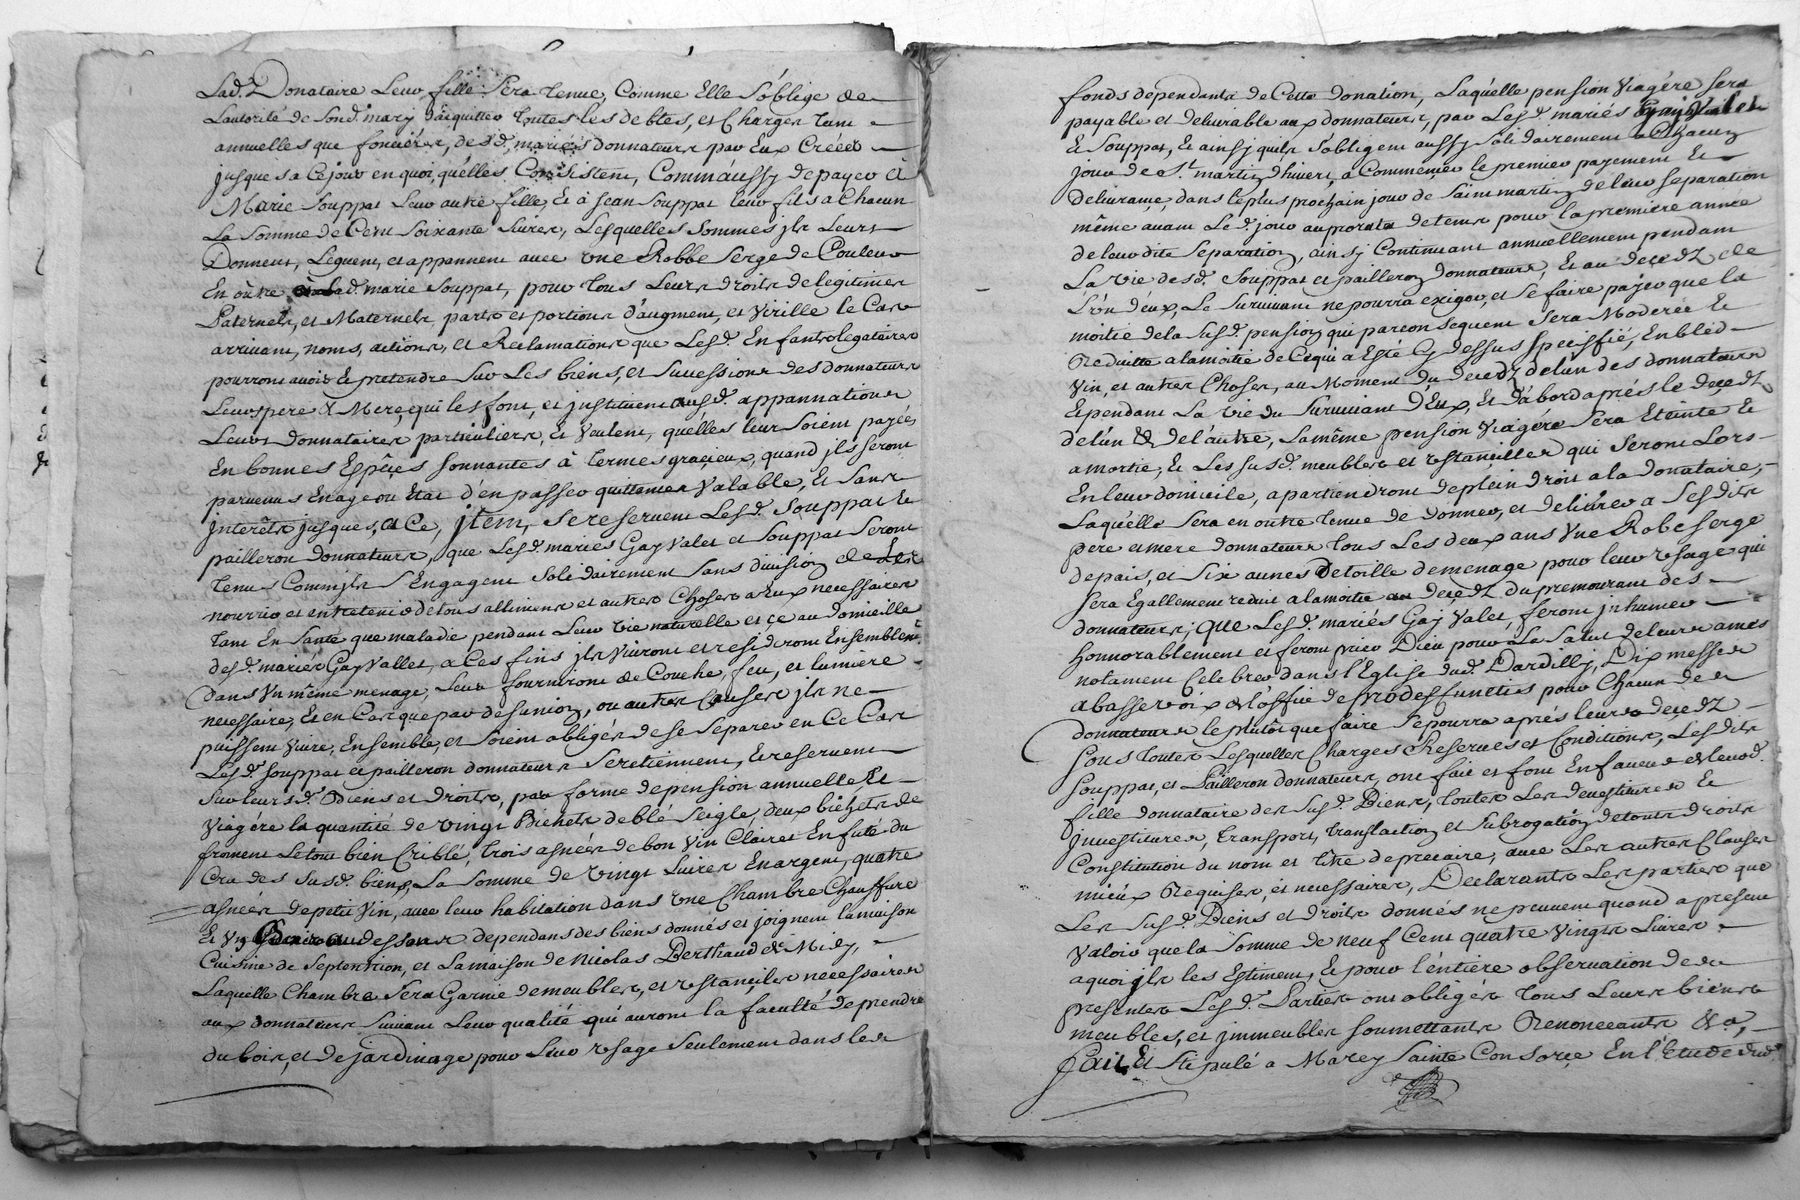 Lad. Donataire Leur fille Sera tenue, Comme Elle S'oblige de
L'autorité de Sond. mary d'acquitter toutes les debtes, et Charges tant
annuelles que foncières, desd. mariés donnateurs par Eux Créées
jusques a Ce jour en quoi, qu'elles Consistent, Comm'aussy de payer à
Marie Souppat Leur autre fille, Et à Jean Souppat leur fils a Chacun
La Somme de Cent Soixante Livres, Lesquelles Sommes jls Leurs
Donnent, Leguent, et appannent avec vne Robbe Serge de Couleur
En outre a Lad. marie Souppat, pour tous Leurs droits de legitimes
Paternels, et Maternels, parts et portions d'augment, et Virille le Cas
arrivant, noms, actions, et Reclamations que Lesd. Enfants legataires
pourront avoir Et pretendre Sur Les biens, et Successions des donnateurs
Leurs pere & Mere, qui les font, et jnstituent ausd. appannations
Leurs donnataires particuliers, Et Veulent, qu'elles leur Soient payées
En bonnes Espêces Sonnantes à termes gracieux, quand jls Seront
parvenus En age ou Etat d'en passer quittances Valable, Et Sans
jnterêts jusques, a Ce, jtem, Se reservent Lesd. Souppat Et
pailleron donnateurs, que Lesd. mariés Gay Valet et Souppat Seront
tenus Comm'jls S'Engagent Solidairement Sans division de Les
nourrir et entretenir de tous allimens et autres Choses a Eux necessaires
tant En Santé que maladie pendant Leur vie naturelle et çe au domicille
desd. mariés Gay Vallet, a Ces fins jls Vivront et residiront Ensemblem.t
dans Vn même menage, Leur fourniront de Couche, feu, et lumiere
necessaire, Et en Cas que par desunion, ou autres Causes jls ne
puissent Vivre, Ensemble, et Soient obligés de Se Separer en Ce Cas
Lesd. Souppat et pailleron donnateurs Se retiennent, Et reservent
Sur leursd. Biens et droits, par forme de pension annuelle, Et
Viagére la quantité de vingt Bichets de blé Seigle, deux bichets de
froment Le tout bien Criblé, trois asnées de bon Vin Clairet En futé du
Cru des Susd. biens, La Somme de Vingt Livres En argent, quatre
asnées de petit Vin, avec leur habitation dans vne Chambre Chauffure
Et Vn au dessous dependans des biens donnés et joignent la maison
Cuisine de Septentrion, et La maison de Nicolas Berthaud de Midy,
Laquelle Chambre Sera Garnie de meubles, et vstanciles necessaires
aux donnateurs Suivant Leur qualité qui auront la faculté de prendre
du bois, et de jardinage pour Leur vsage Seulement dans les
fonds dependants de Cette donation, Laquelle pension Viagére Sera
payable et delivrable aux donnateurs, par Lesd. mariés Gay Vallet
Et Souppat, Et ainsy qu'ils S'obligent aussy Solidairement a Chacun
jour de St. martin d'hiver, a Commencer le premier payement Et
Delivrance, dans le plus prochain jour de Saint martin de leur Separation
même avant Led. jour au prorata de tems pour la premiere année
de leur dite Separation, ainsy Continuant annuellement pendant
La vie desd. Souppat et pailleron donnateurs, Et au decedz de
L'ûn deux, Le Survivant ne pourra exiger, et Se faire payer que la
moitié de la Susd. pension qui par consequent Sera Moderée Et
Reduitte a la moitié de Ce qui a Esté Cy dessus Specifié, En bled
Vin, et autres Choses, au Moment du decedz de l'un des donnateurs
Et pendant La vie du Survivant d'Eux, Et d'abord aprés le decedz
de l'ûn Et de l'autre, La même pension Viagére Sera Eteinte Et
amortie, Et Les Susd. meubles et vstanciilles qui Seront Lors
En leur domicile, apartiendront de plein droit a la Donataire,
Laquelle Sera en outre tenue de donner, et delivrer a Sesdits
pere et mere donnateurs tous Les deux ans vne Robe Serge
de pais, et Six aunes de toille de menage pour leur vsage qui
Sera Egallement reduit a la moitié au decedz du premourant des
donnateurs; que Lesd. mariés Gay Valet, feront jnhumer
honnorablement et feront prier Dieu pour Le Salut de leurs ames
notament Celebrer dans l'Eglise dud. Dardilly, Dix messes
a basse voix & l'office de pro defunctis pour Chacun des
donnateurs le plutôt que faire Se pourra aprés leurs decedz
Sous toutes Lesquelles Charges Reserves et Conditions, Lesdits
Souppat, et Pailleron donnateurs, ont fait et font En faveur de leurd.
fille donnataire des Susd. Biens, toutes Les devestitures Et
jnvestitures, transport, translaction et Subrogation de touts droits
Constitution du nom et titre de precaire, avec Les autres Clauses
mieux Requises, et necessaires, Declarants Les parties que
Les Susd. Biens et droits donnés ne peuvent quand a present
Valoir que la Somme de neuf Cent quatre Vingts Livres
a quoi jls les Estiment, Et pour l'entiére observation des
presentes Lesd. Parties ont obligés tous Leurs biens
meubles, et jmmeubles Soumettants Renonceants &a,
Fait Et Stipulé a Marcy Sainte Consorce En l'Etude dud.